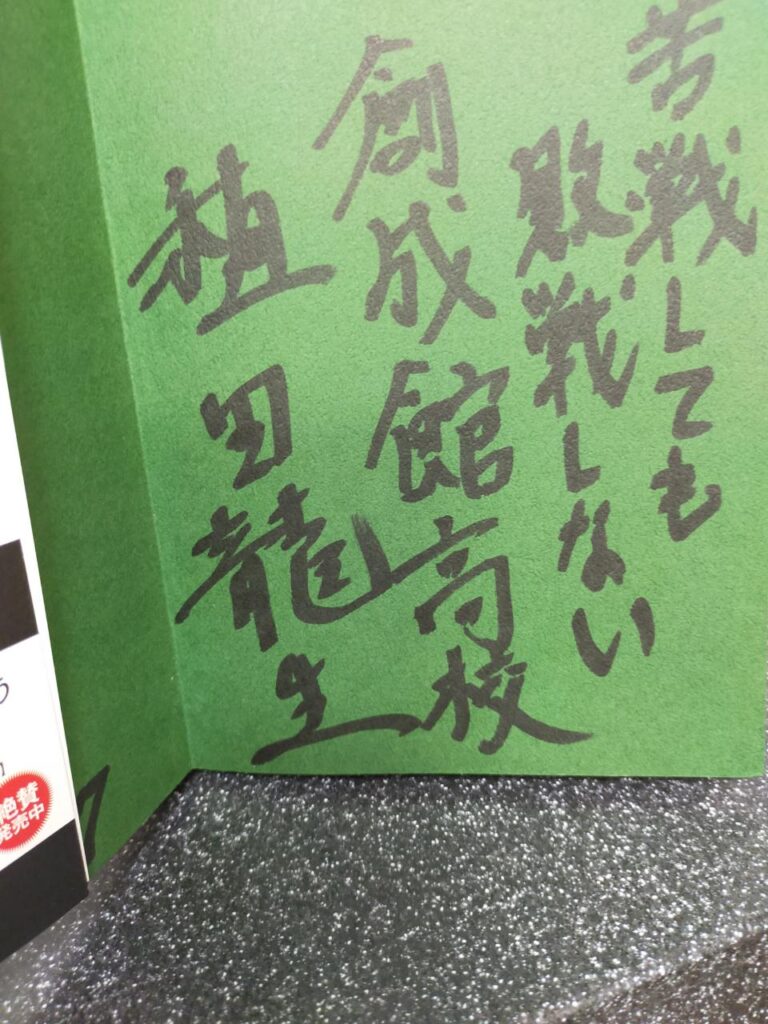 苦戦しても
敗戦しない
創成館高校
稙田龍生
絶賛
発売中